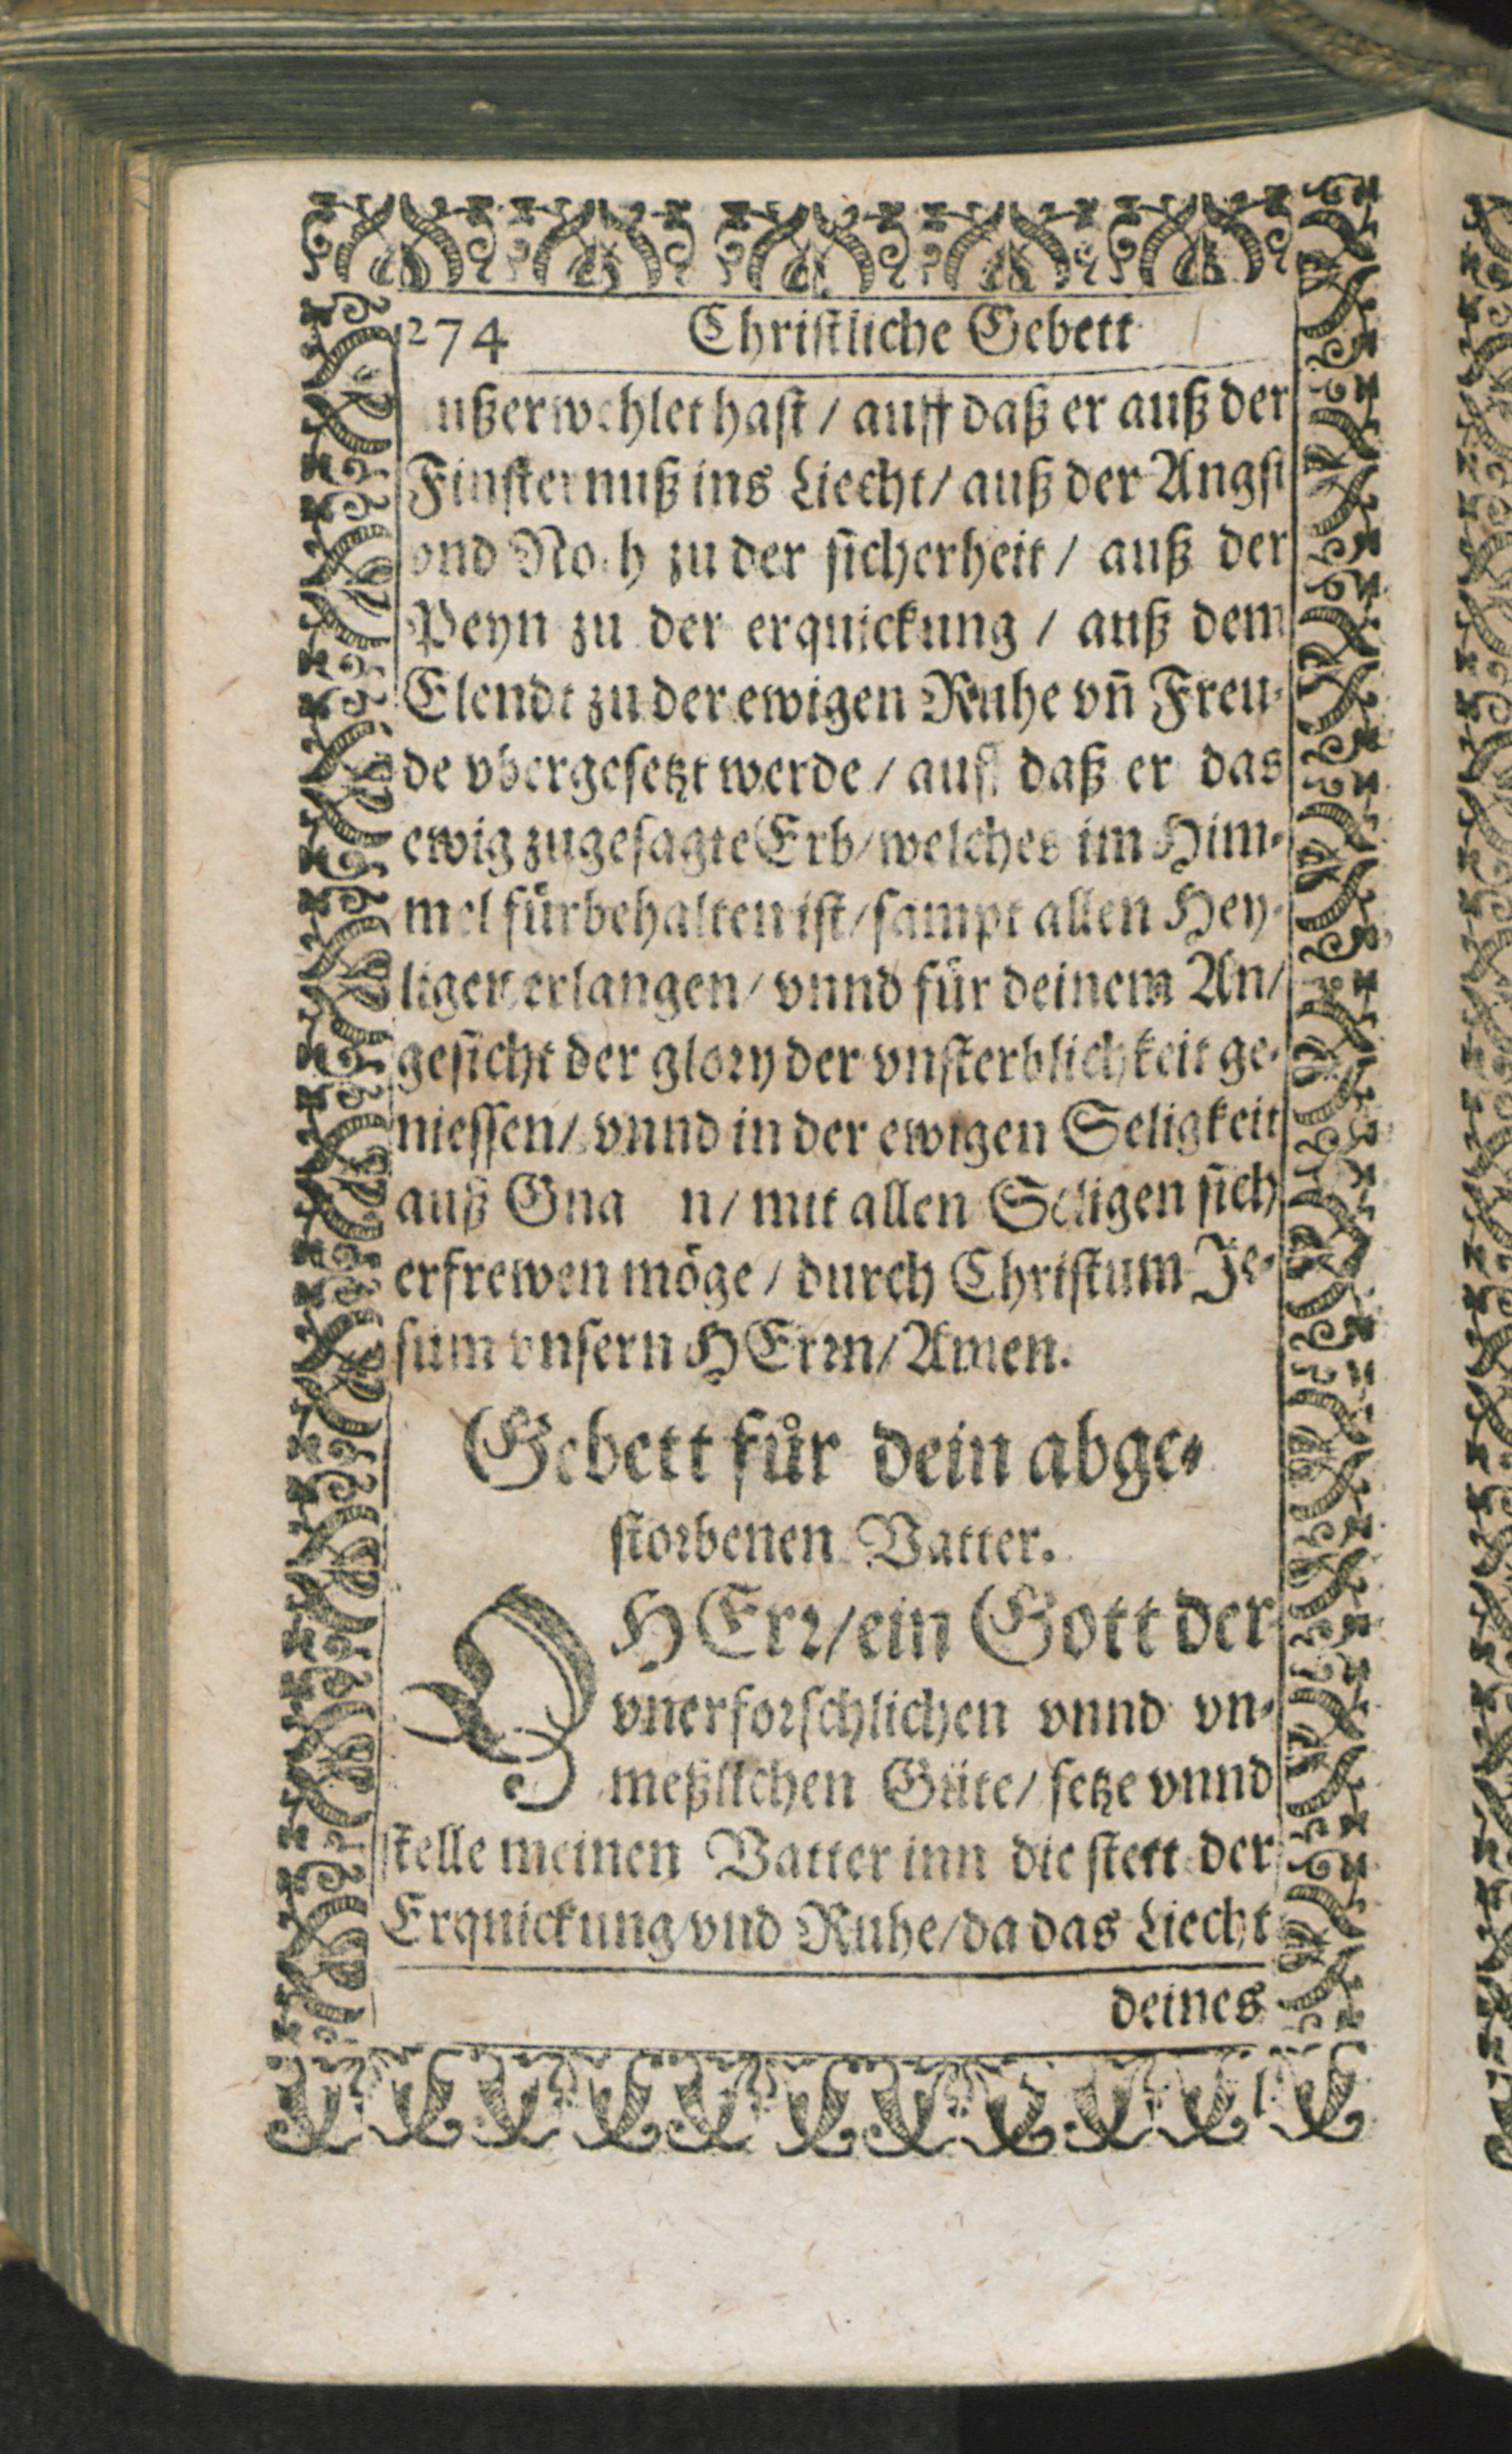 274 Christliche Gebett
ußerwehlet hast / auff daß er auß der
Finsternuß ins Liecht / auß der Angst
vnd Noth zu der sicherheit / auß der
Peyn zu der erquickung / auß dem
Elendt zu der ewigen Ruhe vn̄ Freu-
de vbergesetzt werde / auff daß er das
ewig zugesagte Erb / welches im Him-
mel fürbehalten ist / sampt allen Hey-
ligen erlangen / vnnd für deinem An/
gesicht der glory der vnsterblichkeit ge-
niessen / vnnd in der ewigen Seligkeit
auß Gna n / mit allen Seligen sich
erfrewen möge / durch Christum Je-
sum vnsern HErrn / Amen.
Gebett für dein abge-
storbenen Vatter.
O HErr / ein Gott der
vnerforschlichen vnnd vn-
meßlichen Güte / setze vnnd
stelle meinen Vatter inn die stett der
Erquickung vnd Ruhe / da das Liecht
deines